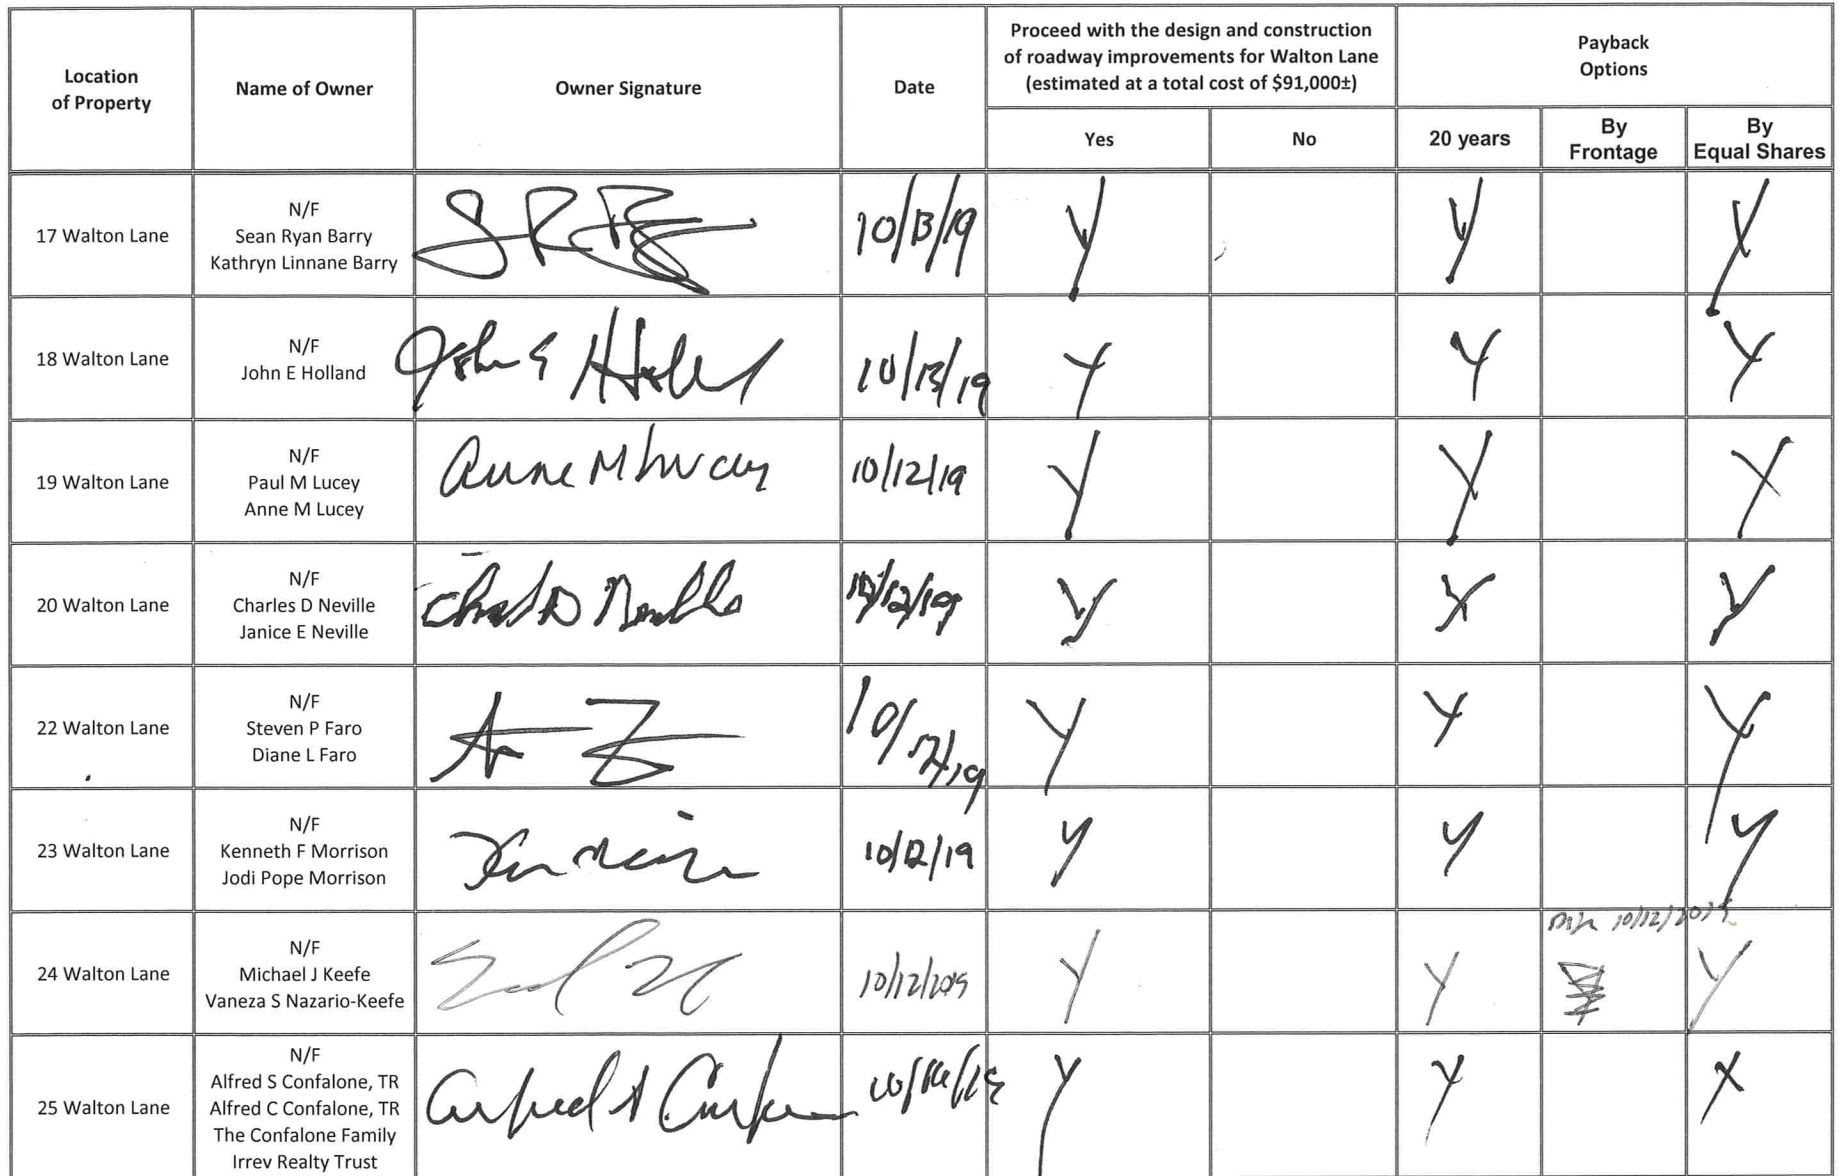 Location of Property | Name of Owner | Owner Signature | Date | Proceed with the design and construction of roadway improvements for Walton Lane (estimated at a total cost of $91,000±) | Payback Options
Yes | No | 20 years | By Frontage | By Equal Shares
17 Walton Lane
N/F
Sean Ryan Barry
Kathryn Linnane Barry
10/13/19 Y Y Y
18 Walton Lane
N/F
John E Holland
John E Holland
10/13/19 Y Y Y
19 Walton Lane
N/F
Paul M Lucey
Anne M Lucey
Anne M Lucey
10/12/19 Y Y Y
20 Walton Lane
N/F
Charles D Neville
Janice E Neville
Charles D Neville
10/12/19 Y Y Y
22 Walton Lane
N/F
Steven P Faro
Diane L Faro
10/12/19 Y Y Y
23 Walton Lane
N/F
Kenneth F Morrison
Jodi Pope Morrison
10/12/19 Y Y Y
24 Walton Lane
N/F
Michael J Keefe
Vaneza S Nazario-Keefe
10/12/2019 Y Y Y
10/12/2019
25 Walton Lane
N/F
Alfred S Confalone, TR
Alfred C Confalone, TR
The Confalone Family
Irrev Realty Trust
Y Y Y